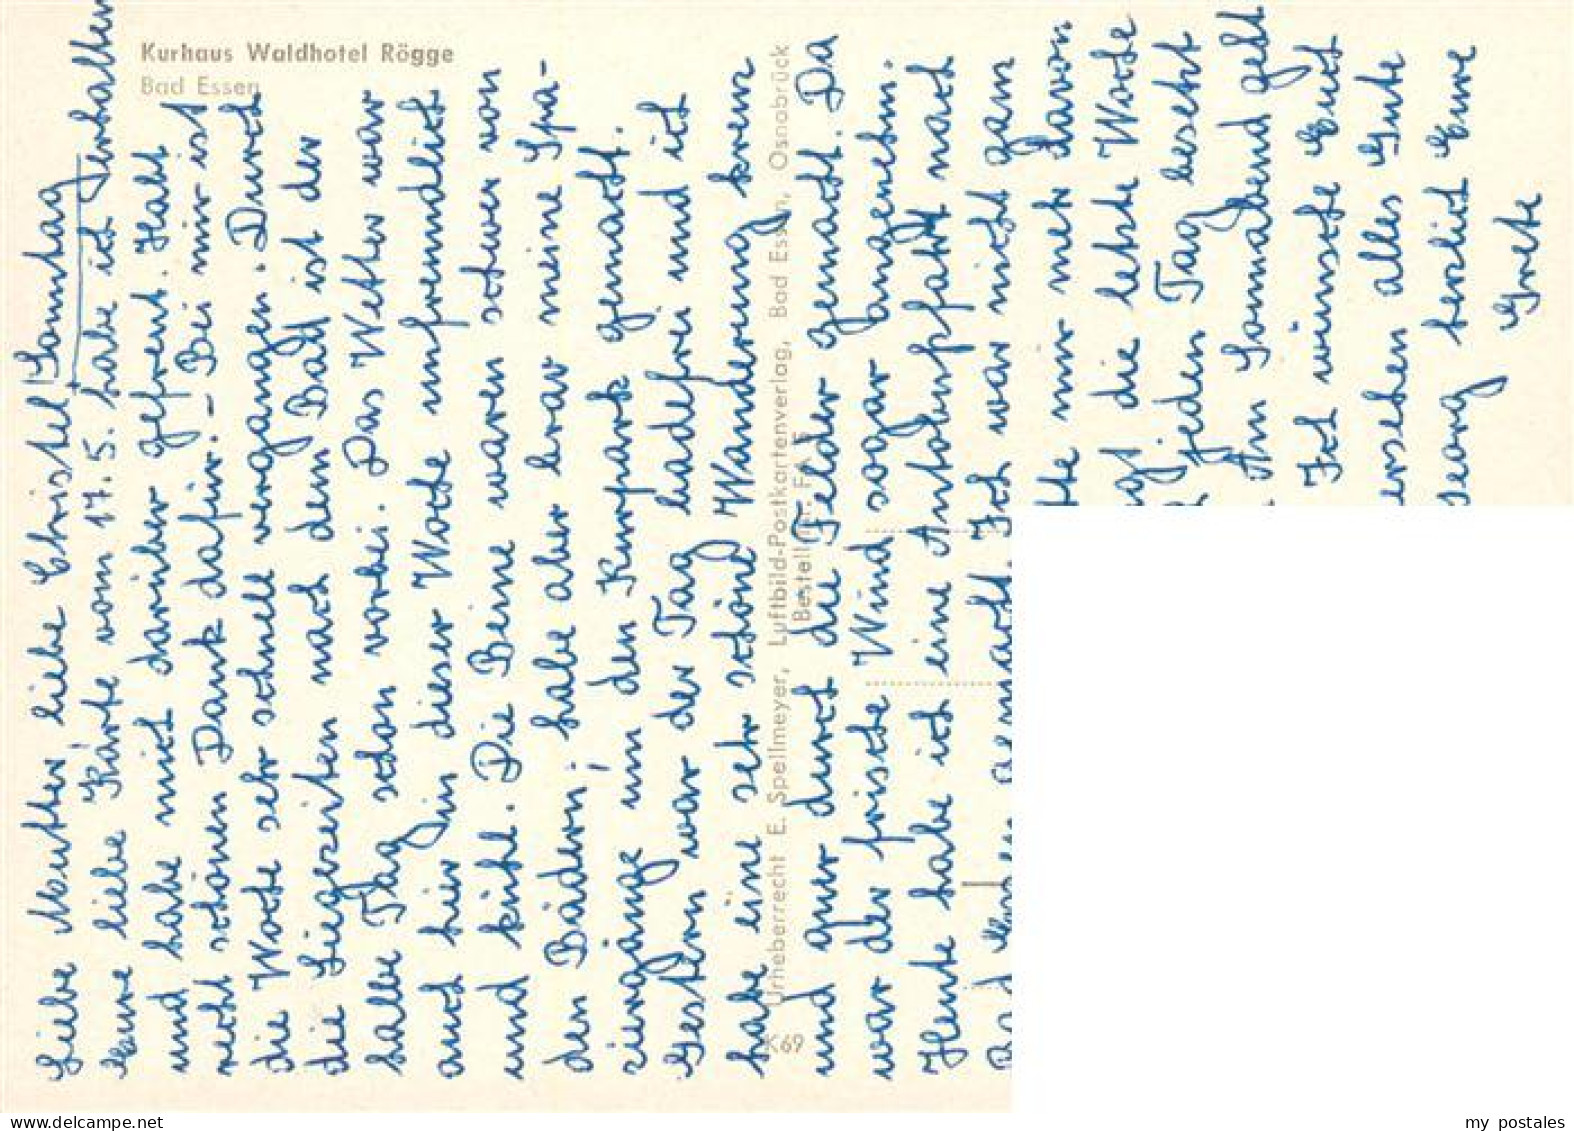 Kurhaus Waldhotel Rögge
Bad Essen
Sonntag
Liebe Mutter, liebe Christel!
Eure liebe Karte vom 17.5. habe ich erhalten
und habe mich darüber gefreut. Habt
recht schönen Dank dafür. - Bei mir ist
die Woche sehr schnell vergangen. Durch
die Liegezeiten nach dem Bad ist der
halbe Tag schon vorbei. Das Wetter war
auch hier in dieser Woche unfreundlich
und kühl. Die Beine waren schwer von
den Bädern; habe aber brav meine Spa-
ziergänge um den Kurpark gemacht.
Gestern war der Tag badefrei und ich
habe eine sehr schöne Wanderung kreuz
und quer durch die Felder gemacht. Da
war der frische Wind sogar angenehm.
Heute habe ich eine Autobusfahrt nach
gemacht. Ich war nicht ganz
tte mir mehr davon
gt die letzte Woche
jeden Tag besetzt
Am Sonnabend geht
Ich wünsche Euch
ersehen alles Gute
eorg herzlich Eure
Grete
K69 Urheberrecht E. Spellmeyer, Luftbild-Postkartenverlag, Bad Essen, Osnabrück
my-postcard.delcampe.net
my postales